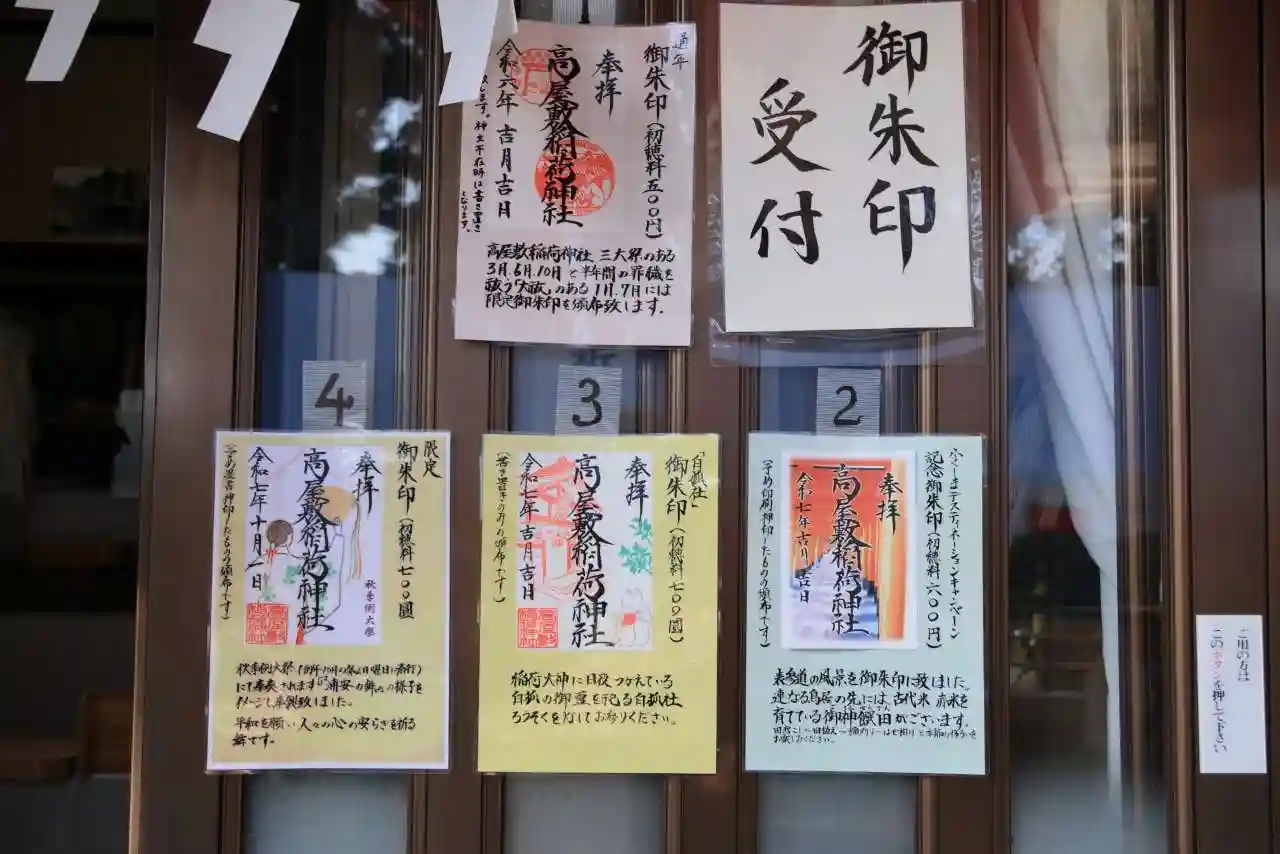 御朱印
受付
通年
御朱印(初穂料五〇〇円)
奉拝
高屋敷稲荷神社
令和六年 吉月吉日
神主不在時は書き置き
となります。
高屋敷稲荷神社 三大祭のある
3月.6月.10月と半年間の罪穢を
祓う「大祓」のある1月.7月には
限定御朱印を頒布致します.
2
ふくしまデスティネーションキャンペーン
記念御朱印(初穂料 六〇〇円)
奉拝
高屋敷稲荷神社
令和七年吉月吉日
(予め印刷押印したもの頒布です)
表参道の風景を御朱印に致しました。
連なる鳥居の先には、古代米 赤米を
育てている御神饌田がございます。
3
「白狐社」
御朱印(初穂料 七〇〇圓)
奉拝
高屋敷稲荷神社
令和七年吉月吉日
(書き置きのみの頒布です)
稲荷大神に日夜つかえている
白狐の御霊を祀る白狐社
ろうそくを灯してお参りください。
4
限定
御朱印(初穂料 七〇〇圓)
奉拝
高屋敷稲荷神社
秋季例大祭
令和七年十月一日
にて奉奏されます浦安の舞の様子を
イメージし奉製致しました。
平和を願い人々の心の安らぎを祈る
舞です。
ご用の方は
このボタンを押して下さい